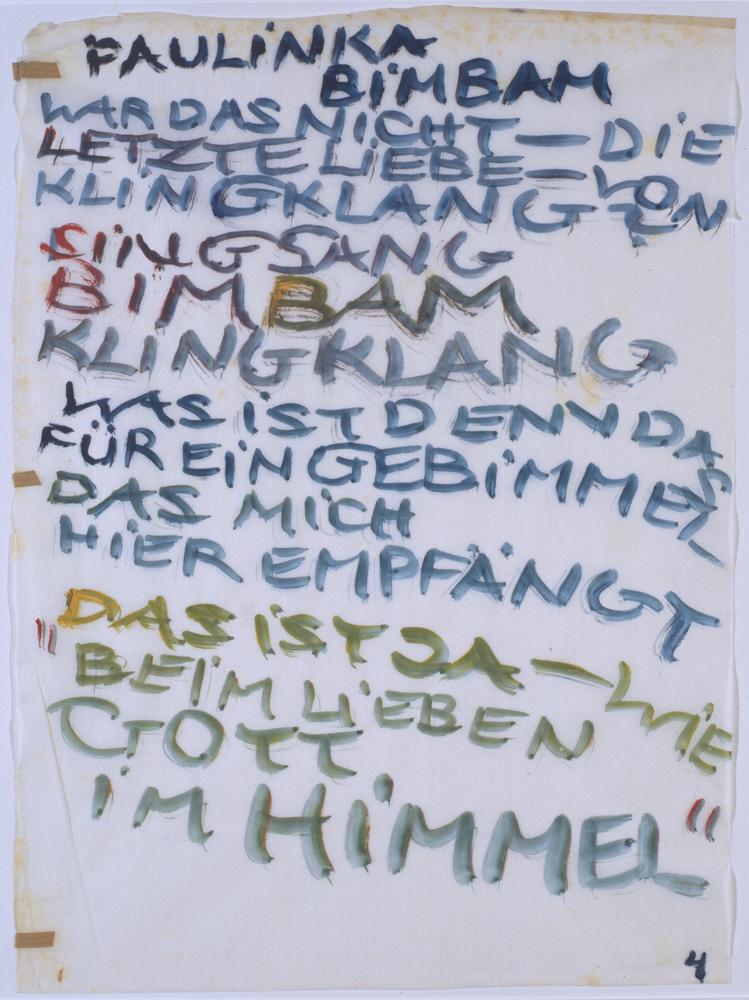 PAULiNKA
BiMBAM
WAR DAS NiCHT — DiE
LETZTE LiEBE — VON
KLiNGKLANG-EN
SiNGSANG
BiMBAM
KLiNGKLANG
WAS iST DENN DAS
FÜR EiN GEBiMMEL
DAS MiCH
HiER EMPFÄNGT
"DAS iST JA — WiE
BEiM LiEBEN
GOTT
iM HiMMEL"
4